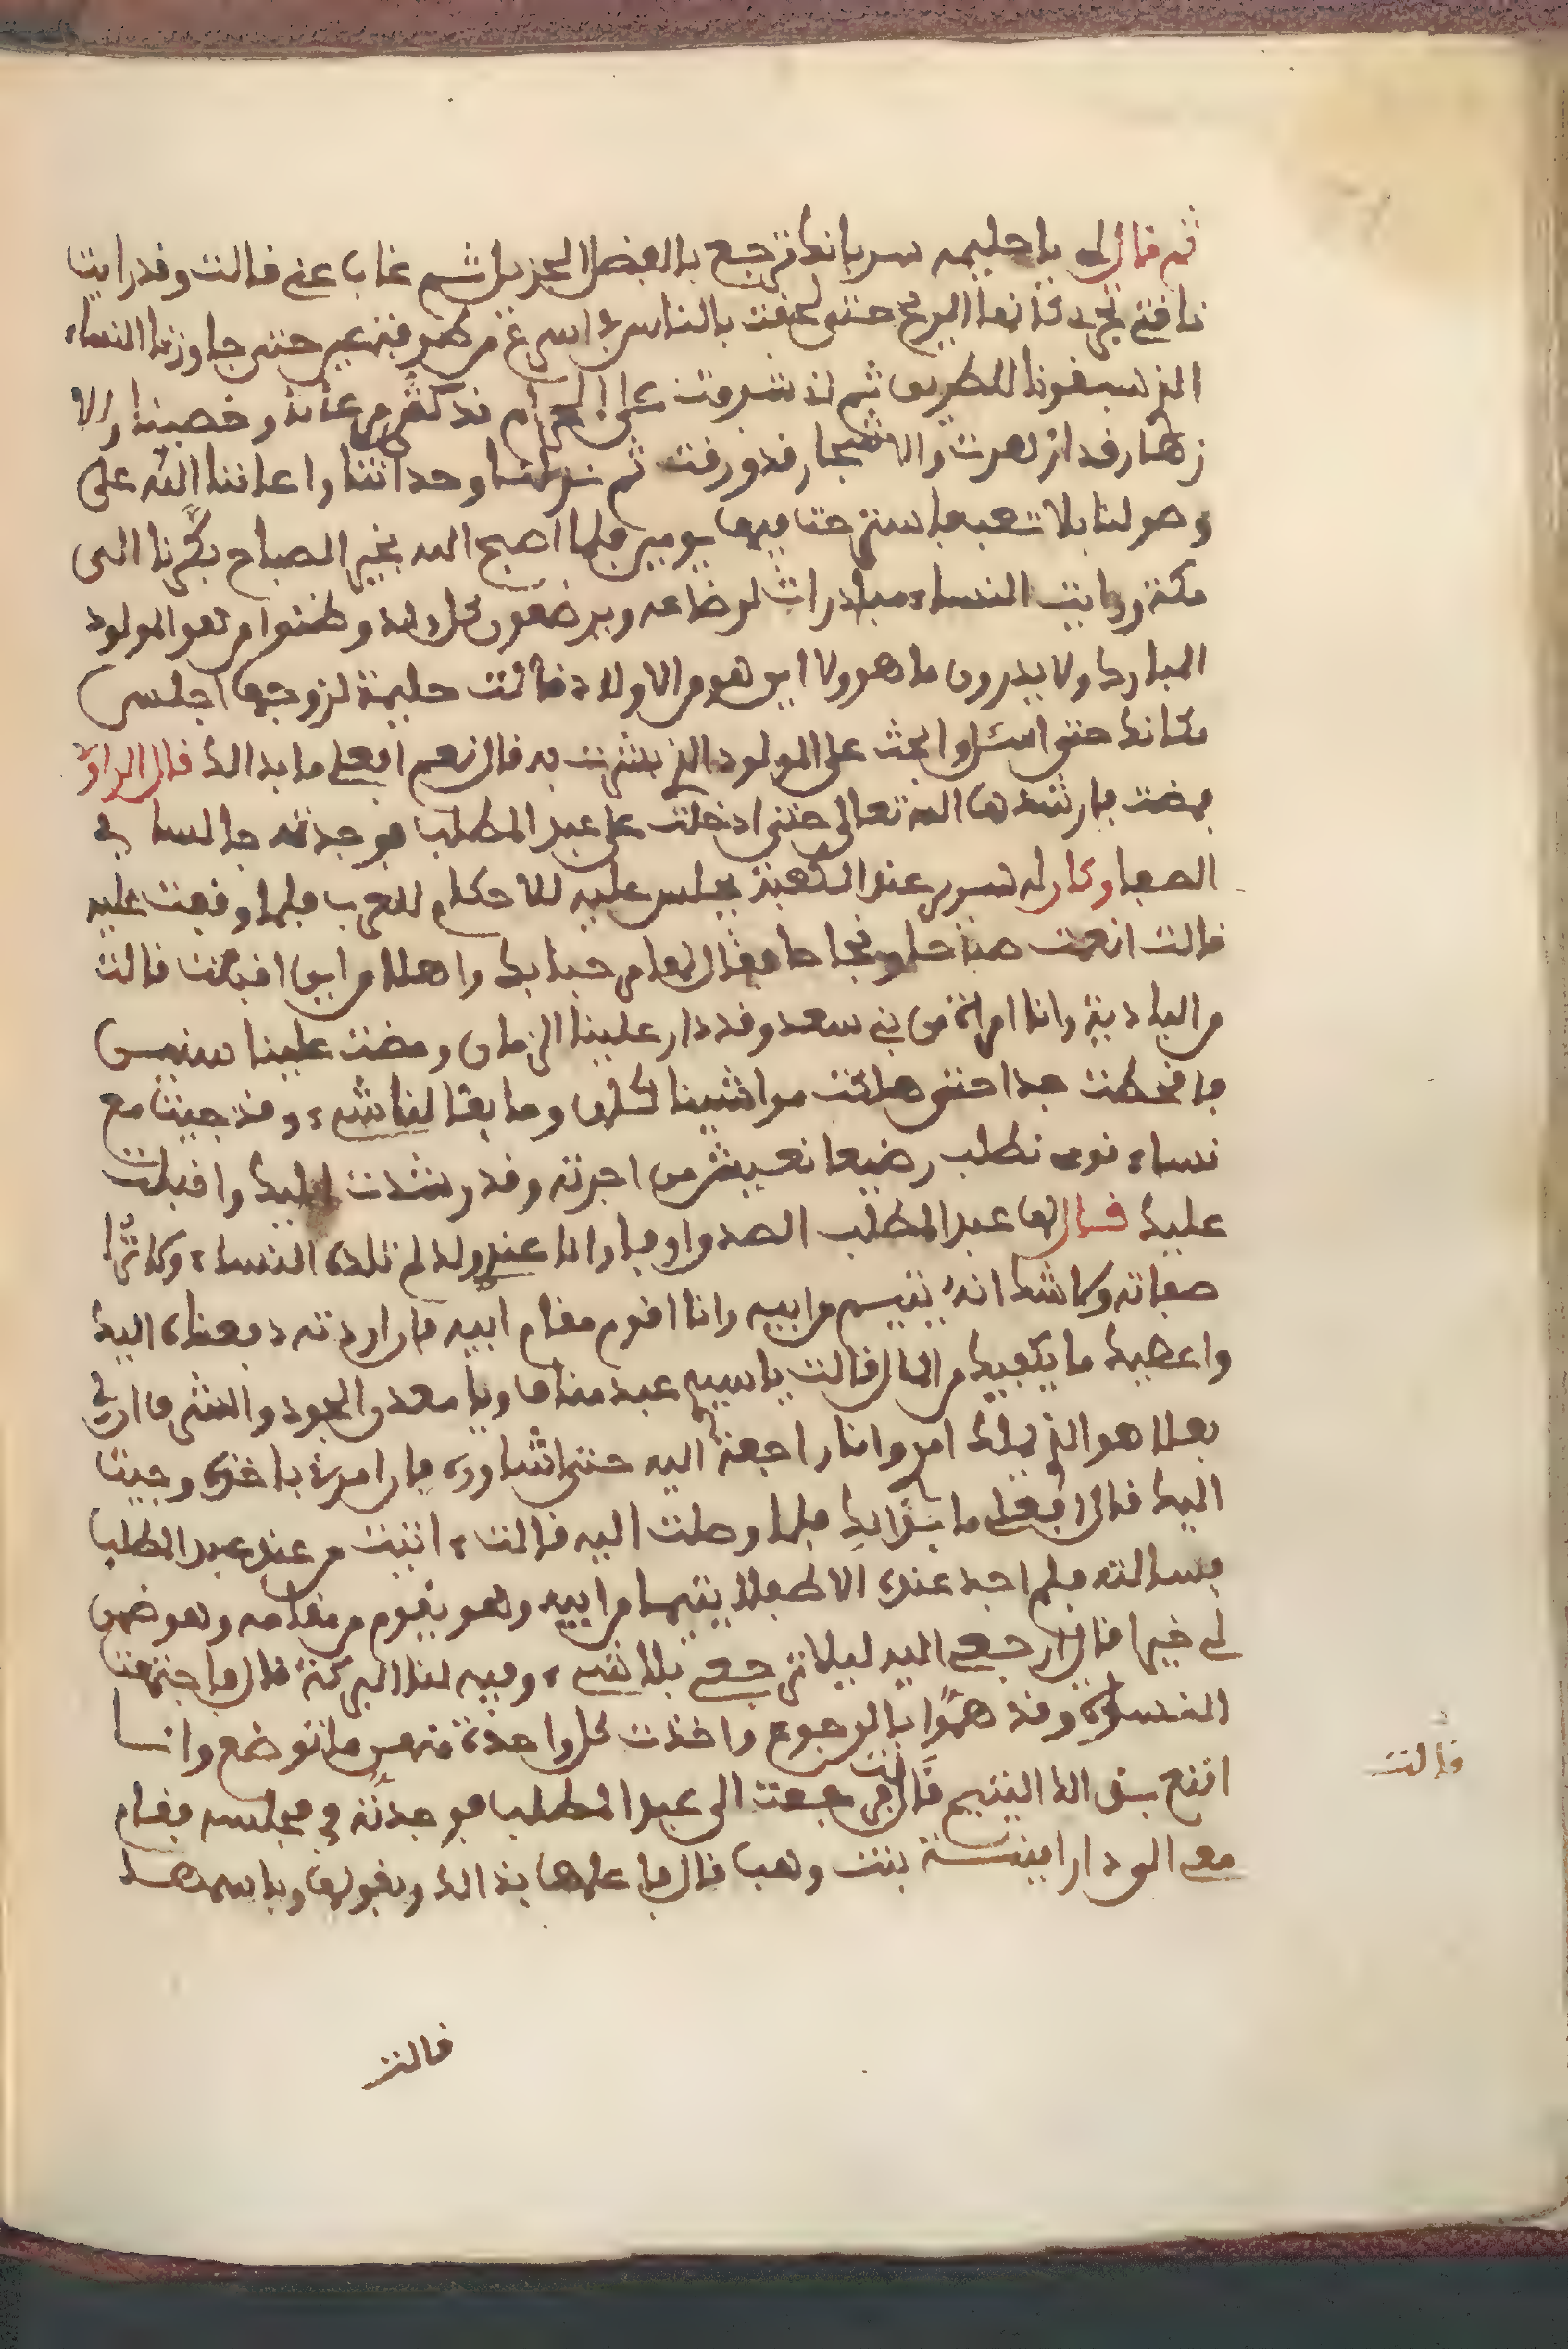 ثم قال لي يا حليمه سر بانك ترجع بالفضل الجزيل ثم غاب عني قالت وقد رايت
ناقتي تجري كانها الريح حتى لحقت بالناس في اسرع من طرفة عين حتى جاوزنا النساء
الذي سبقونا للطريق ثم اذ شرفت على الحرام قد كثر مرعاته وخصبته والا
زهار قد ازهرت والاشجار قد ورقت ثم نزلنا وحداثنا واعاننا الله على
وصولنا بلا تعب فاسترحنا فيها يومين فلما اصبح الله بخير الصباح بكرنا الى
مكة ورايت النساء مبادرات لرضاعه ويرضعون كل ولد وظنوا من هو المولود
المبارك ولا يدرون ما هو ولا اين هو من الاولاد فقالت حليمة لزوجها اجلس
مكانك حتى اسئل وابحث على المولود الذي بشرت به قال نعم افعلي ما بدالك قال الراوي
فمضت فارشدها الله تعالى حتى ادخلت على عبد المطلب فوجدته جالسا في
الصفا وكان له سرير عند الكعبة يجلس عليه للاحكام للعرب فلما وقفت عليه
قالت انعمت صباحا ونجاحا فقال لها مرحبا بك واهلا من اين اقبلت قالت
من البادية وانا امراة من بني سعد وقد دار علينا الزمان ومضت علينا سنين
فاقحطت جدا حتى هلكت مواشينا كلها وما بقا لنا شيء وقد جيت مع
نساء قومي نطلب رضيعا نعيش من اجرته وقد رشدت اليك واقبلت
عليك فقال لها عبد المطلب الصدق اوفا وانا عندي ولد لم تلده النساء وكاثر
صفاته وكاشك انه يتيم من ابيه وانا اقوم مقام ابيه فان اردته دفعته اليك
واعطيك ما يكفيك من المال قالت يا سيد عبد مناف ويا معدن الجود والشرف ان لي
بعلا هو الذي يملك امري وانا راجعة اليه حتى اشاوره فان امرني باخذه وجيت
اليك قال افعلي ما بدالك فلما وصلت اليه قالت اتيت من عند عبد المطلب
فسالته فلم اجد عنده الا طفلا يتيما من ابيه وهو يقوم من مقامه وهو ضمن
لي خيرا قال ارجعي اليه ليلا ترجعي بلا شيء وفيه لنا البركة قال فاجتمعت
النسوة وقد هموا بالرجوع واخذت كل واحدة منهن ما توضع وانا
اقنع بذالك اليتيم قالت فرجعت الى عبد المطلب فوجدته في مجلسه فقام
معي الى دار امينة بنت وهب قال فاعلمها بذالك وبقولها وباسمها
قالت
قالت